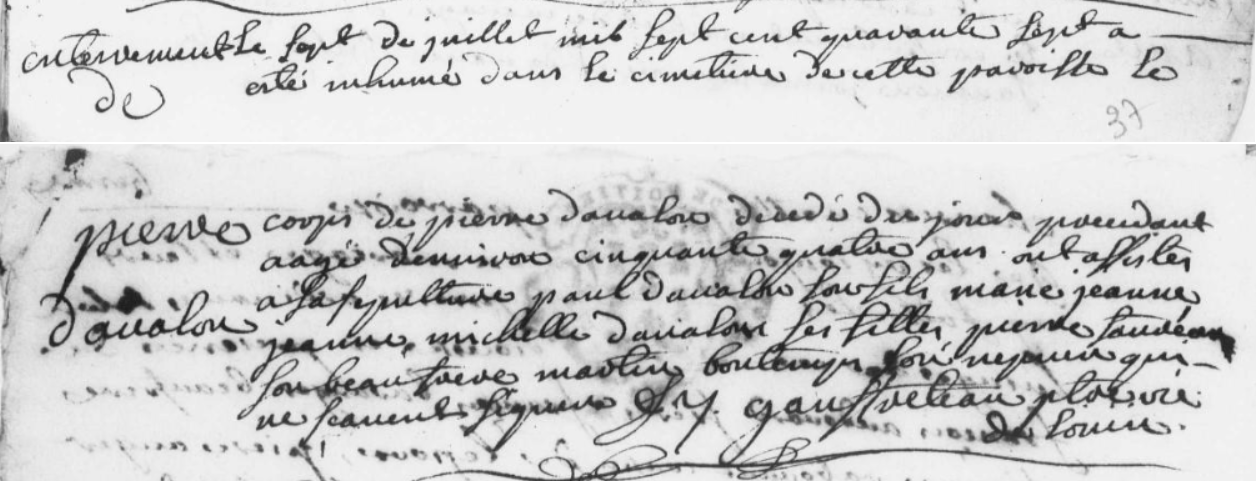 enterrement Le sept de juillet mil sept cent quarante sept a
de esté inhumé dans le cimetiere de cette paroisse le
37
pierre corps de pierre davalon decedé du jour precedant
aagé d'environ cinquante quatre ans ont assistés
davalon a la sepulture paul davalon son fils marie jeanne
jeanne michelle davalon ses filles pierre
son beaufrere martin bontemps son nepveu qui
ne scavent signer gauffreteau
de